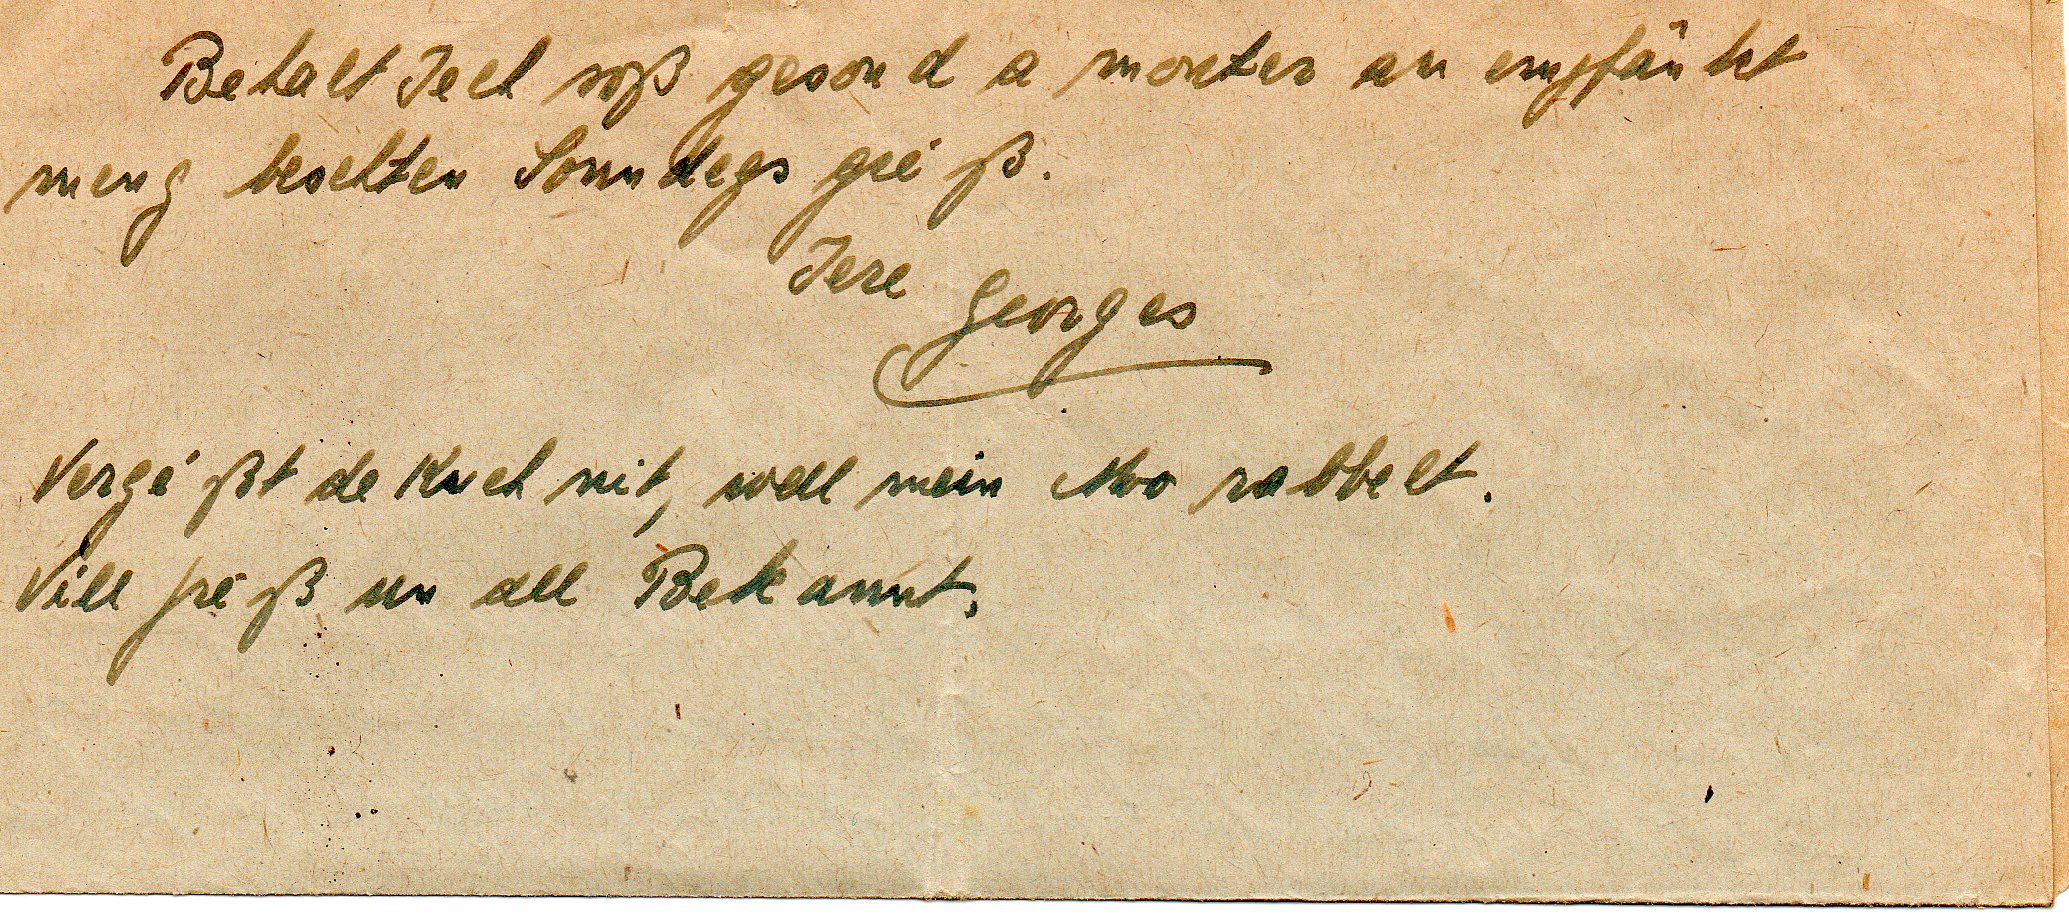 Behalt Iech soß gesond a monter an empfänkt
meng beschten Sonndegs gré ß.
Iere Georges
Vergé ßt de Kuch nit, well mein Mo rabbelt.
Vill gré ß un all Bekannt.